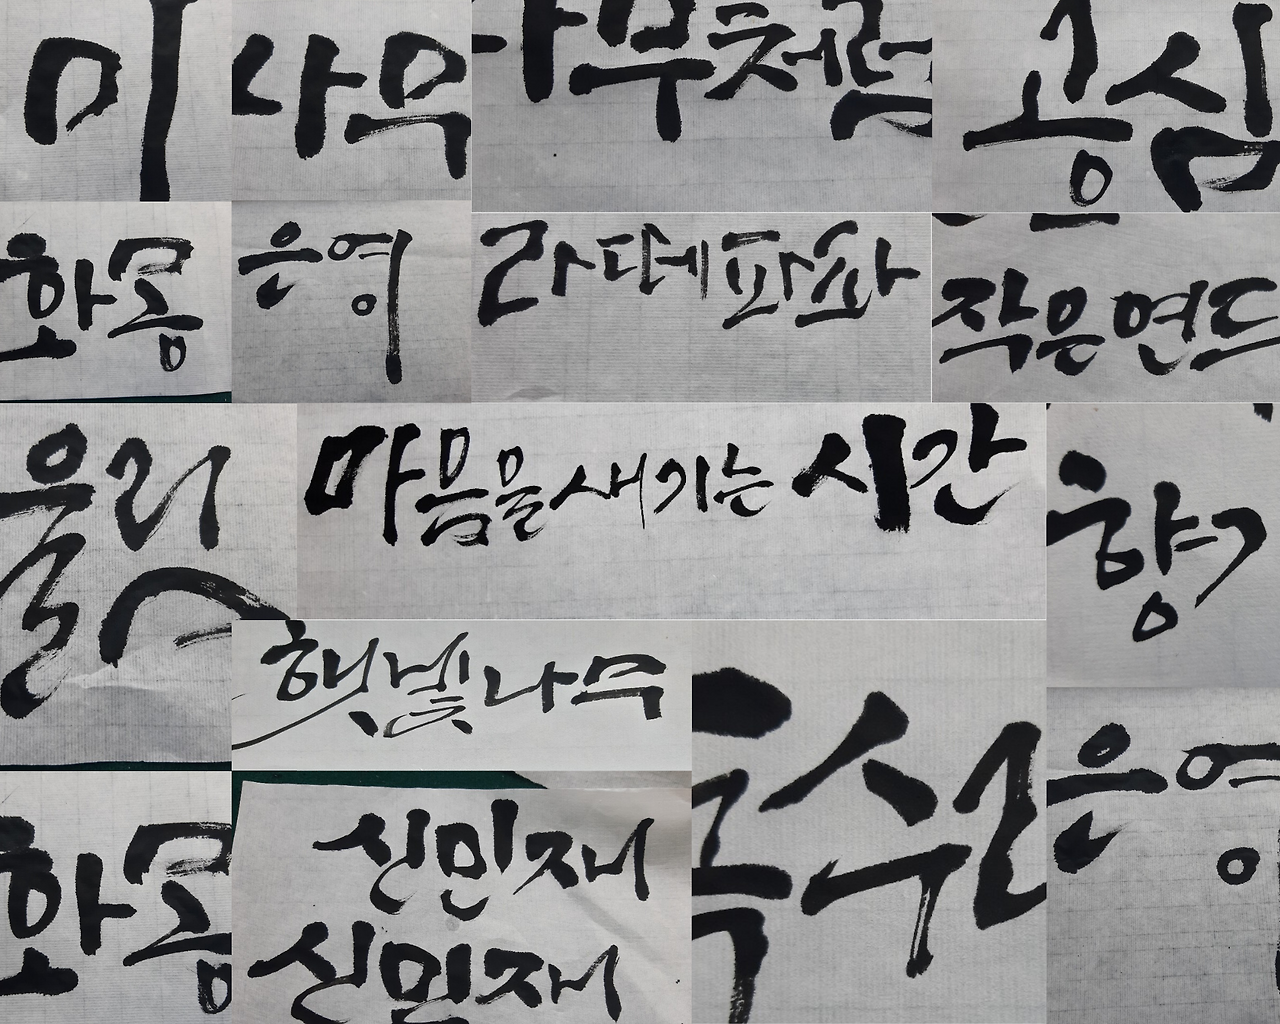 미
나무
나무처럼
공심
화몽
은영
라떼파파
작은연드
울리
마음을새기는 시간
향기
햇빛나무
화몽
신민재
신민재
수
은영